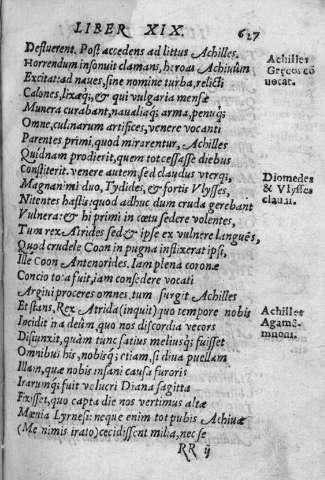 LIBER XIX. 627
Defluerent. Post accedens ad littus Achilles.
Horrendum insonuit clamans, heroas Achiuûm
Excitat: ad naues, sine nomine turba, relicti
Calones, lixaq;, & qui vulgaria mensæ
Munera curabant, naualiaq; arma, penuq;
Omne, culinarum artifices, venere vocanti
Parentes primi, quod mirarentur, Achilles
Quidnam prodierit, quem tot cessasse diebus
Constiterit. venere autem sed claudus vterq;
Magnanimi duo, Tydides, & fortis Vlysses,
Nitentes hastis: quod adhuc dum cruda gerebant
Vulnera: & hi primi in cœtu sedere volentes,
Tum rex Atrides sed & ipse ex vulnere languẽs,
Quod crudele Coon in pugna inflixerat ipsi,
Ille Coon Antenorides. Iam plena coronæ
Concio tota fuit, iam consedere vocati
Argiui proceres omnes, tum surgit Achilles
Et stans, Rex Atrida (inquit) quo tempore nobis
Incidit ira deûm, quo nos discordia vecors
Disiunxit, quàm tunc satius meliusq; fuisset
Omnibus his, nobisq; etiam, si diua puellam
Illam, quæ nobis insani causa furoris
Irarumq; fuit volucri Diana sagitta
Fixisset, quo capta die nos vertimus altæ
Mœnia Lyrnesi: neque enim tot pubis Achiuæ
(Me nimis irato) cecidissent milia, nec se
RR ij
Achilles
Grecos cõ
uocat.
Diomedes
& Vlysses
claudi.
Achilles
Agamẽ-
mnoni.